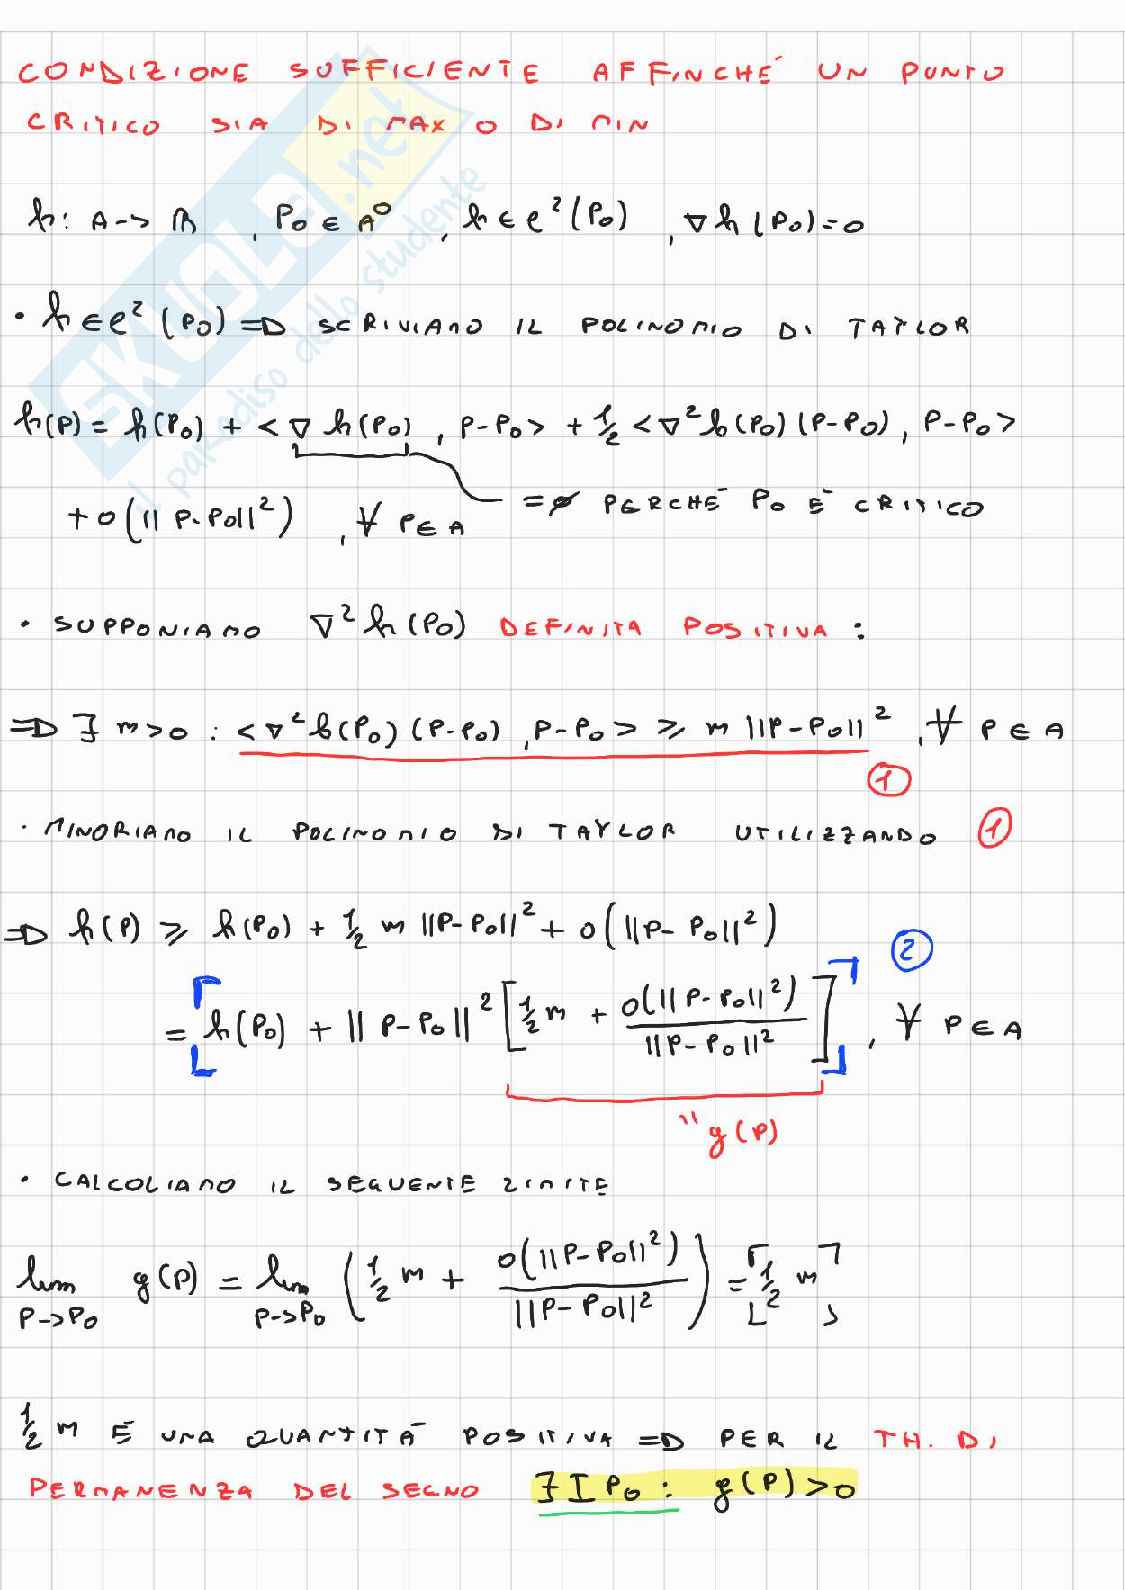 CONDIZIONE SUFFICIENTE AFFINCHÉ UN PUNTO
CRITICO SIA DI MAX O DI MIN
h: A -> R , P0 ∈ A° , h ∈ C²(P0) , ∇h(P0)=0
• h ∈ C²(P0) => SCRIVIAMO IL POLINOMIO DI TAYLOR
h(P) = h(P0) + <∇h(P0), P-P0> + 1/2 <∇²h(P0)(P-P0), P-P0>
+ o(||P-P0||²) , ∀ P ∈ A = 0 PERCHÉ P0 È CRITICO
• SUPPONIAMO ∇²h(P0) DEFINITA POSITIVA :
=> ∃ m>0 : <∇²h(P0)(P-P0), P-P0> ≥ m ||P-P0||² , ∀ P ∈ A
1
• MINORIAMO IL POLINOMIO DI TAYLOR UTILIZZANDO 1
=> h(P) ≥ h(P0) + 1/2 m ||P-P0||² + o(||P-P0||²)
2
= h(P0) + ||P-P0||² [1/2 m + o(||P-P0||²)/||P-P0||²] , ∀ P ∈ A
" g(P)
• CALCOLIAMO IL SEGUENTE LIMITE
lim P->P0 g(P) = lim P->P0 (1/2 m + o(||P-P0||²)/||P-P0||²) = 1/2 m
1/2 m È UNA QUANTITÀ POSITIVA => PER IL TH. DI
PERMANENZA DEL SEGNO ∃ I P0 : g(P) > 0
SKUOLA.net
Il paradiso dello studente